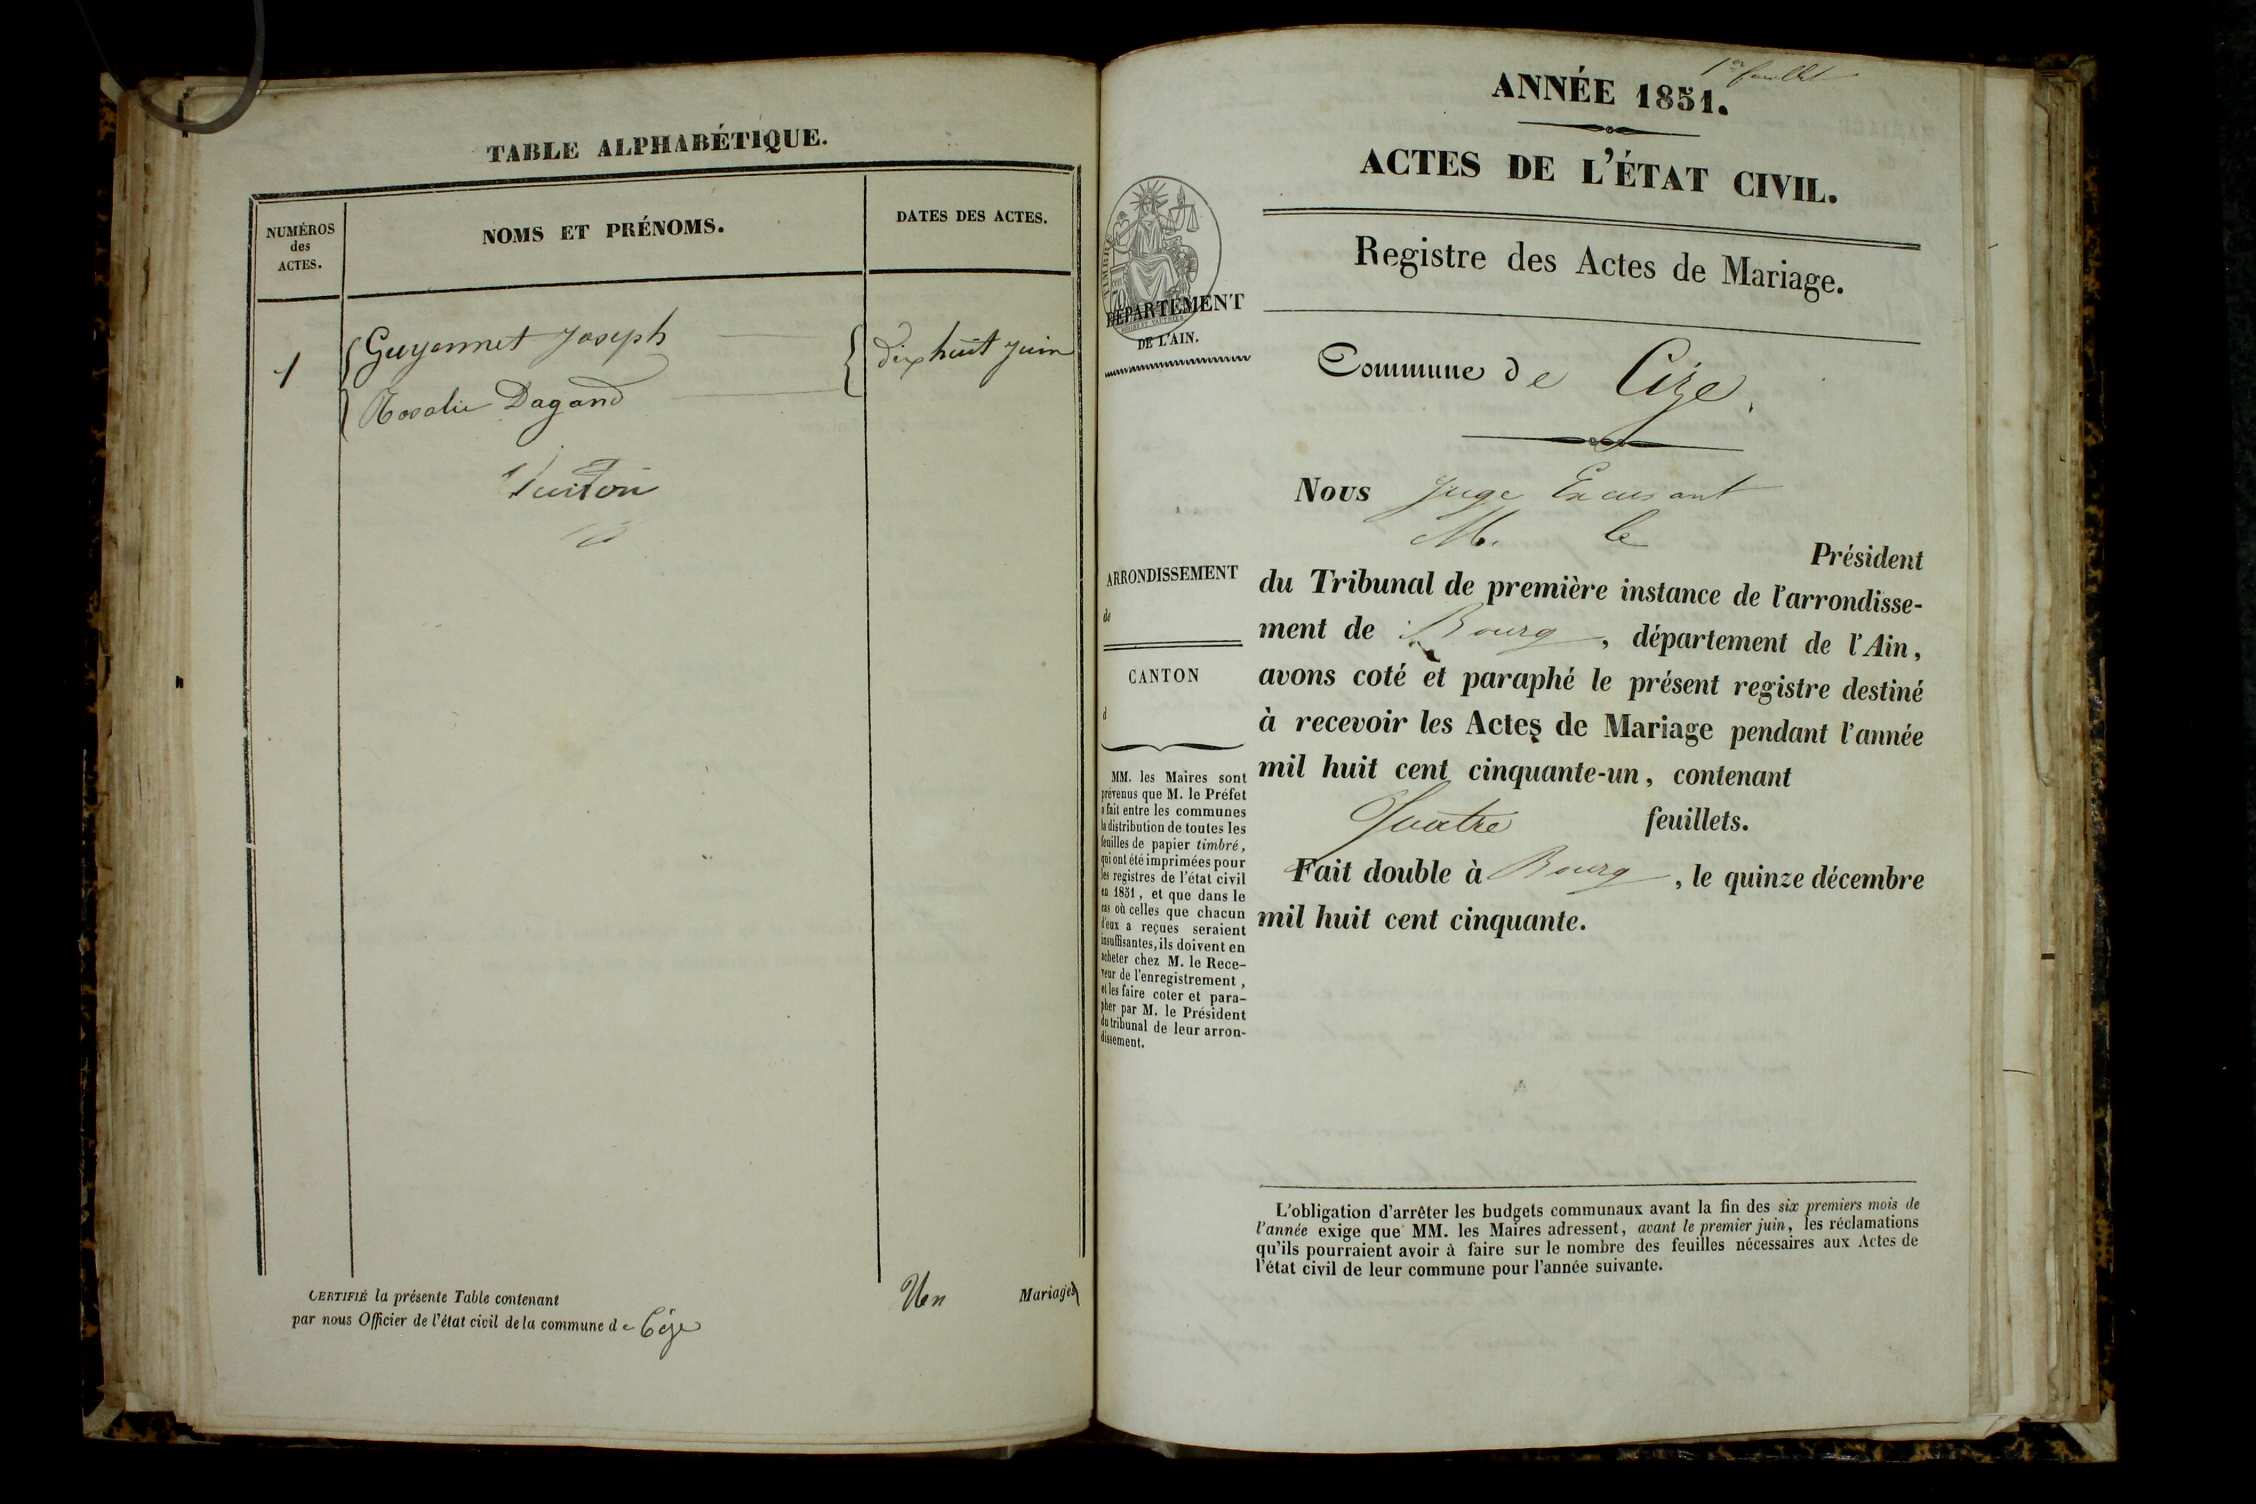 TABLE ALPHABÉTIQUE.
NUMÉROS
des
ACTES.
NOMS ET PRÉNOMS.
DATES DES ACTES.
1
Guyennet Joseph
dix huit juin
Rosalie Dagand
Un Mariage
CERTIFIÉ la présente Table contenant
par nous Officier de l'état civil de la commune de Cize
1er feuillet
ANNÉE 1851.
ACTES DE L'ÉTAT CIVIL.
Registre des Actes de Mariage.
DÉPARTEMENT
DE L'AIN.
Commune de Cize
Nous Juge Excusant
M. le
Président
du Tribunal de première instance de l'arrondisse-
ment de Bourg, département de l'Ain,
avons coté et paraphé le présent registre destiné
à recevoir les Actes de Mariage pendant l'année
mil huit cent cinquante-un, contenant
Quatre feuillets.
Fait double à Bourg, le quinze décembre
mil huit cent cinquante.
ARRONDISSEMENT
de
CANTON
d
MM. les Maires sont
prévenus que M. le Préfet
a fait entre les communes
la distribution de toutes les
feuilles de papier timbré,
qui ont été imprimées pour
les registres de l'état civil
en 1851, et que dans le
cas où celles que chacun
d'eux a reçues seraient
insuffisantes, ils doivent en
acheter chez M. le Rece-
veur de l'enregistrement,
et les faire coter et para-
pher par M. le Président
du tribunal de leur arron-
dissement.
L'obligation d'arrêter les budgets communaux avant la fin des six premiers mois de
l'année exige que MM. les Maires adressent, avant le premier juin, les réclamations
qu'ils pourraient avoir à faire sur le nombre des feuilles nécessaires aux Actes de
l'état civil de leur commune pour l'année suivante.